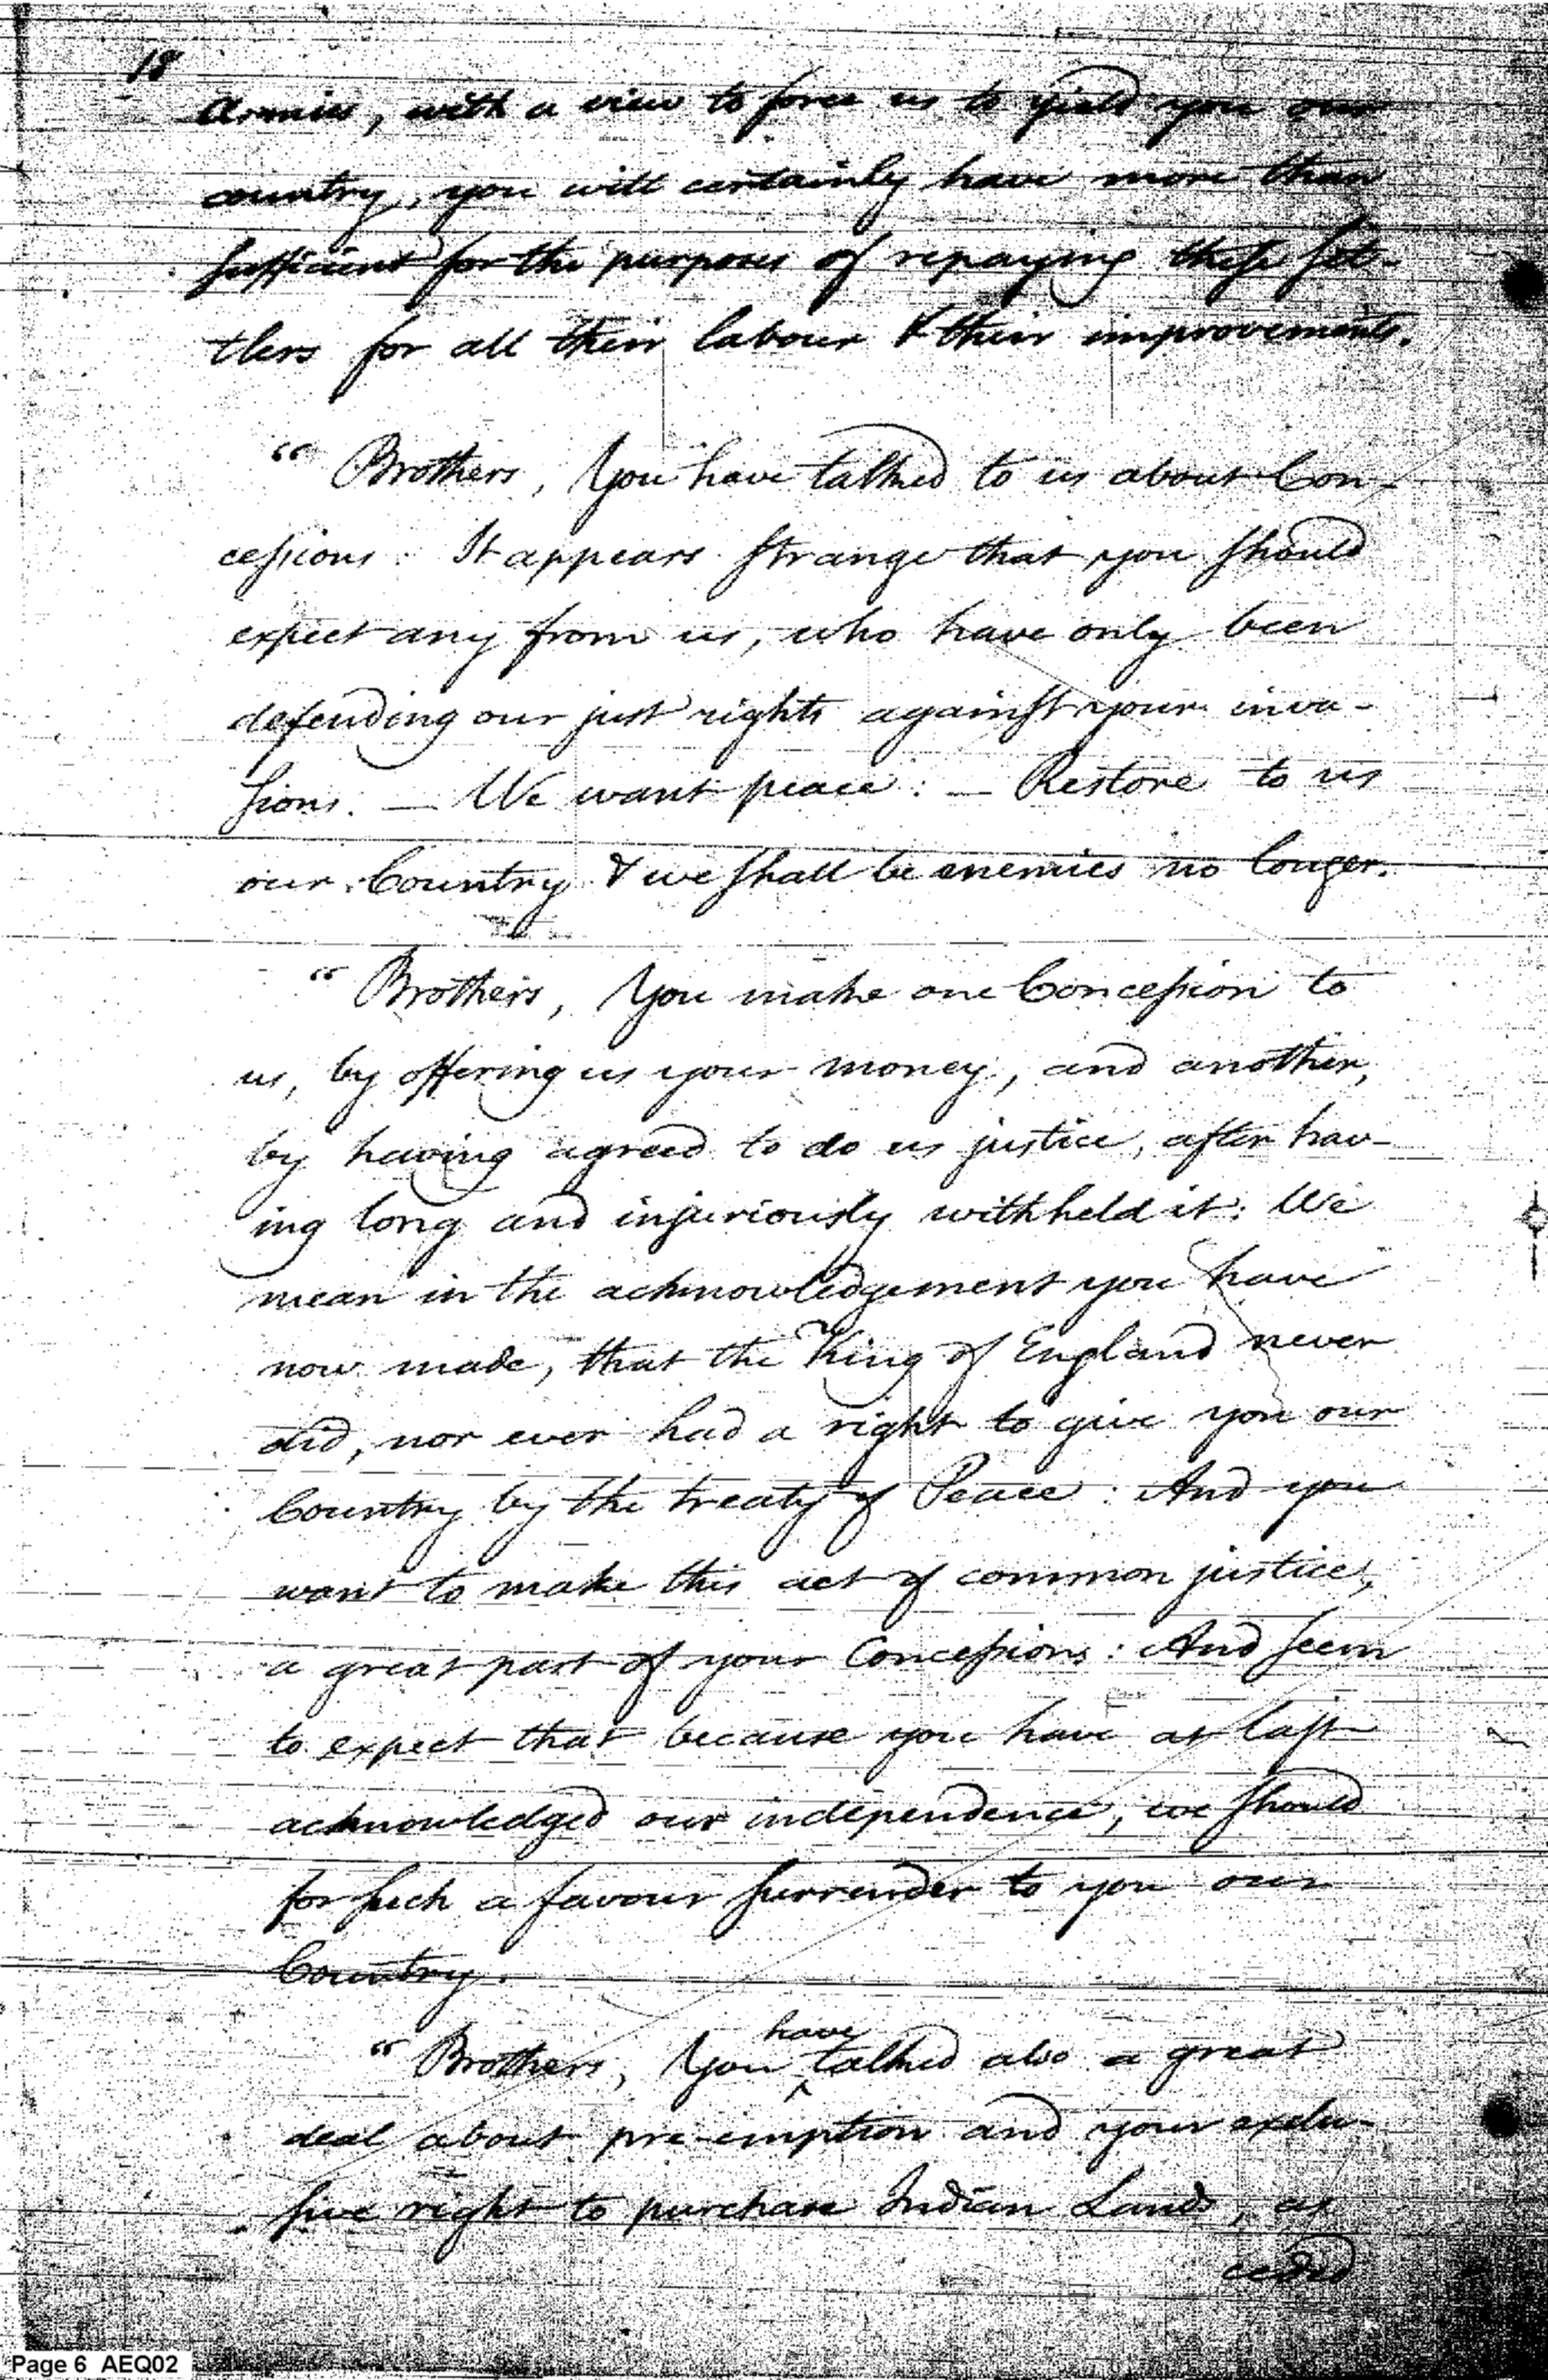 18
Armies, with a view to force us to yield you our
country, you will certainly have more than
sufficient for the purposes of repaying these set-
tlers for all their labour & their improvements.
“ Brothers, You have talked to us about Con-
cessions. It appears strange that you should
expect any from us, who have only been
defending our just rights against your inva-
sions. — We want peace: — Restore to us
our Country & we shall be enemies no longer.
“ Brothers, You make one Concession to
us, by offering us your money, and another,
by having agreed to do us justice, after hav-
ing long and injuriously withheld it: We
mean in the acknowledgement you have
now made, that the King of England never
did, nor ever had a right to give you our
Country by the treaty of Peace: And you
want to make this act of common justice,
a great part of your Concessions: And seem
to expect that because you have at last
acknowledged our independence, we should
for such a favour surrender to you our
Country.
“ Brothers, You have talked also a great
deal about pre-emption and your exclu-
sive right to purchase Indian Lands, as
ceded
Page 6 AEQ02